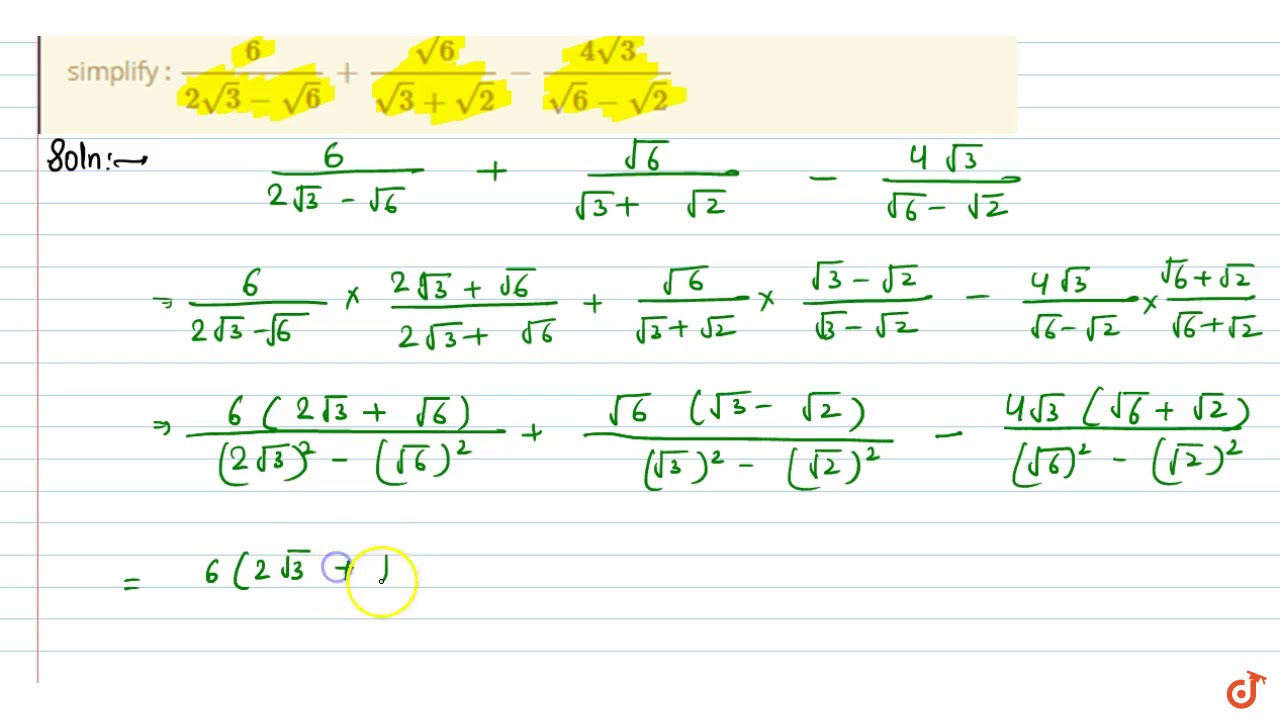 simplify : 6/(2√3 − √6) + √6/(√3 + √2) − 4√3/(√6 − √2)
Soln:→ 6/(2√3 − √6) + √6/(√3 + √2) − 4√3/(√6 − √2)
⇒ 6/(2√3 − √6) × (2√3 + √6)/(2√3 + √6) + √6/(√3 + √2) × (√3 − √2)/(√3 − √2) − 4√3/(√6 − √2) × (√6 + √2)/(√6 + √2)
⇒ 6(2√3 + √6)/((2√3)² − (√6)²) + √6(√3 − √2)/((√3)² − (√2)²) − 4√3(√6 + √2)/((√6)² − (√2)²)
= 6(2√3 +